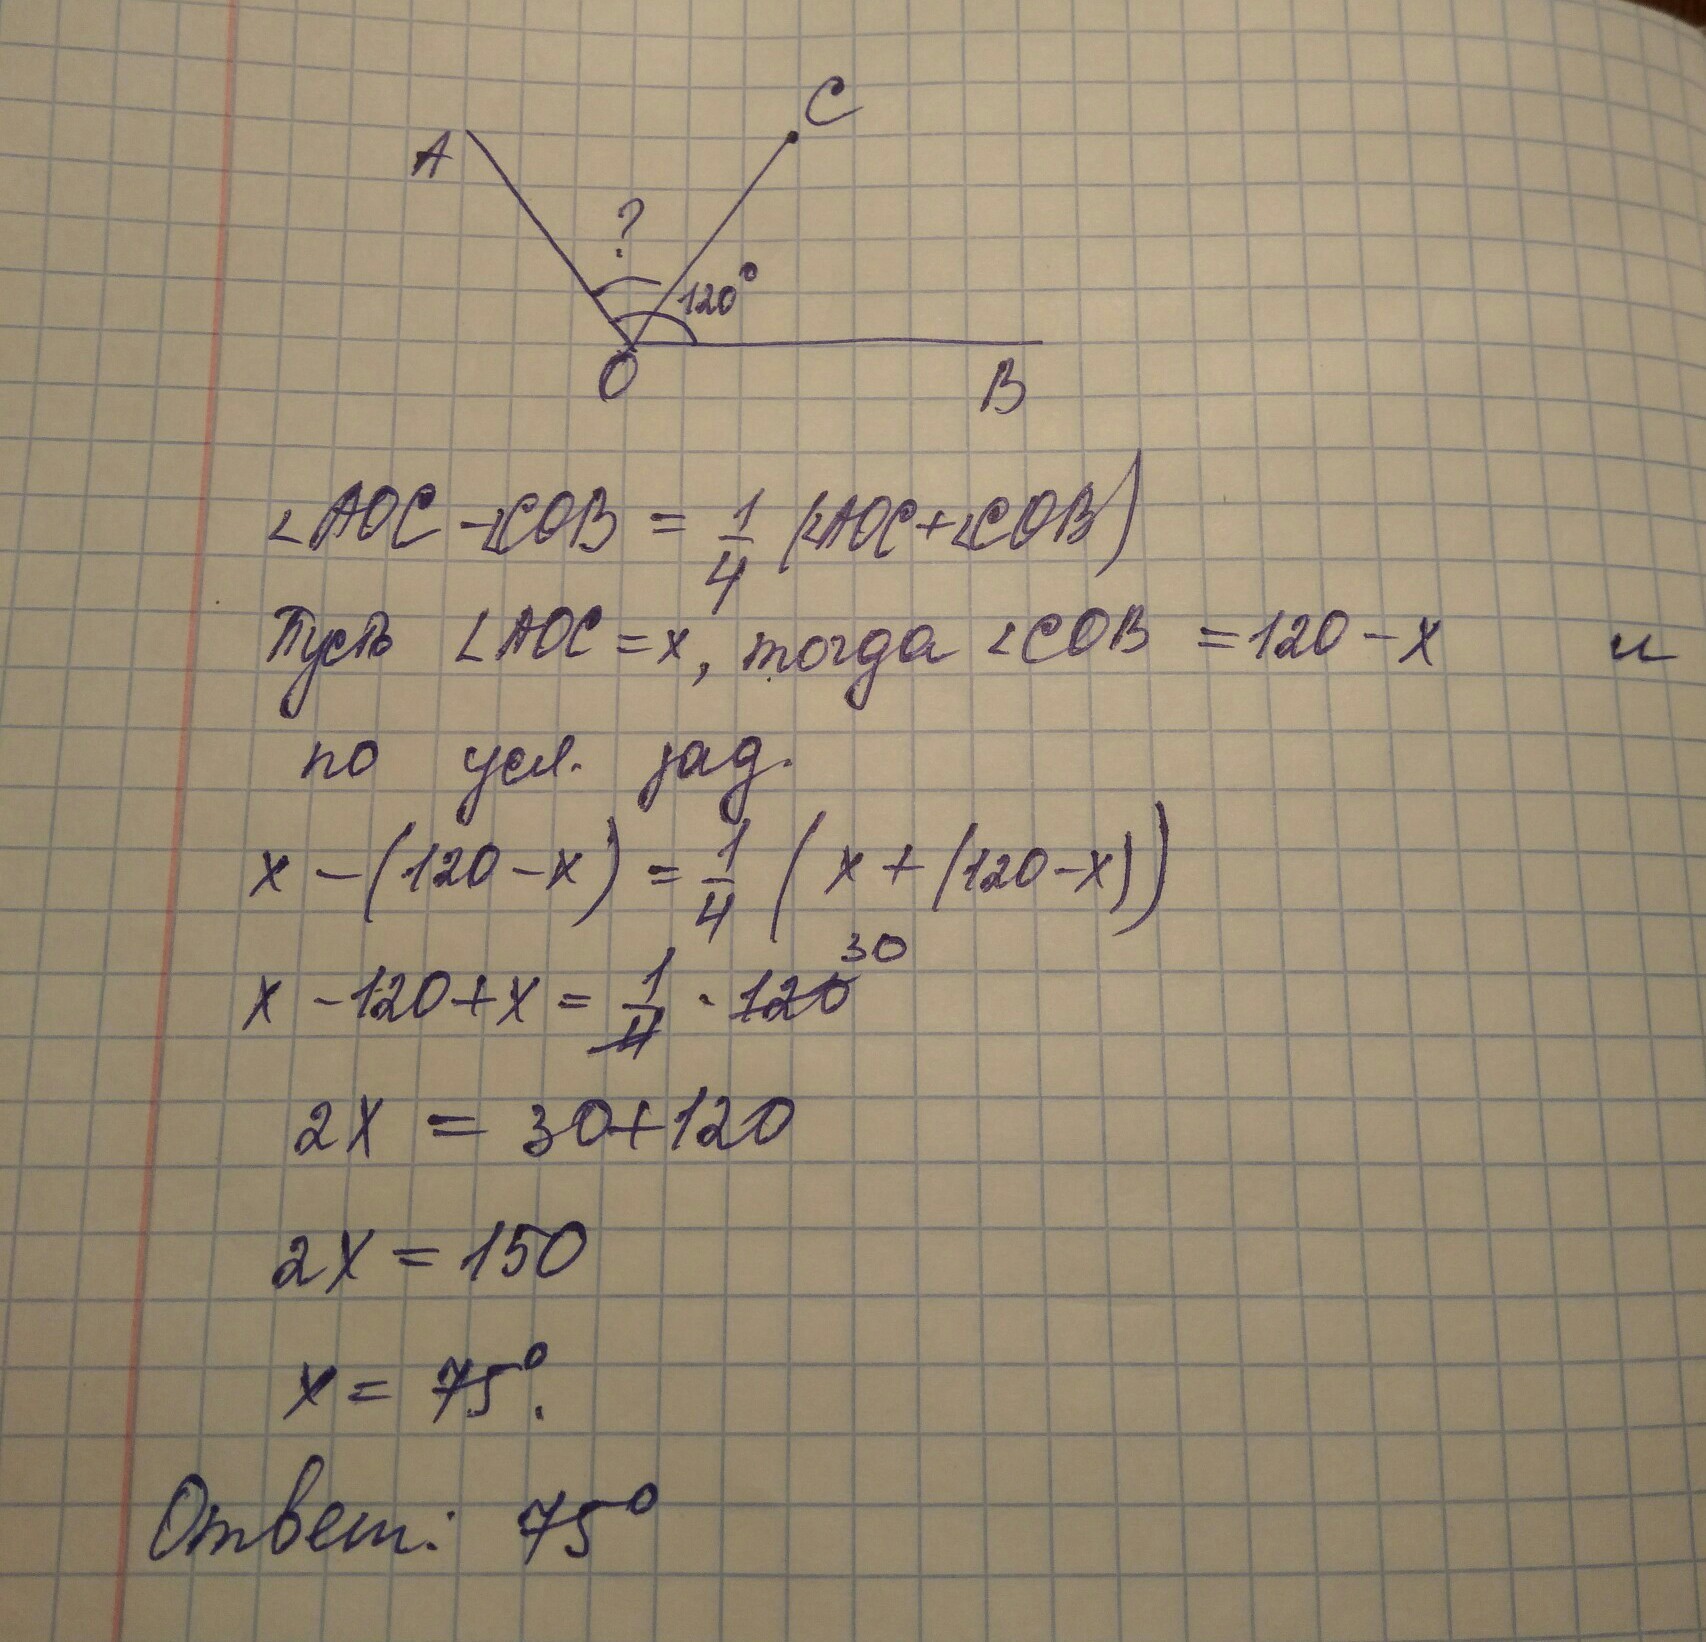 A
C
?
120°
O
B
∠AOC -∠COB = 1/4 (∠AOC+∠COB)
Пусть ∠AOC = x, тогда ∠COB = 120 - x и
по усл. зад.
x - (120 - x) = 1/4 ( x + (120 - x))
x - 120 + x = 1/4 · 120 30
2x = 30+120
2x = 150
x = 75°.
Ответ: 75°